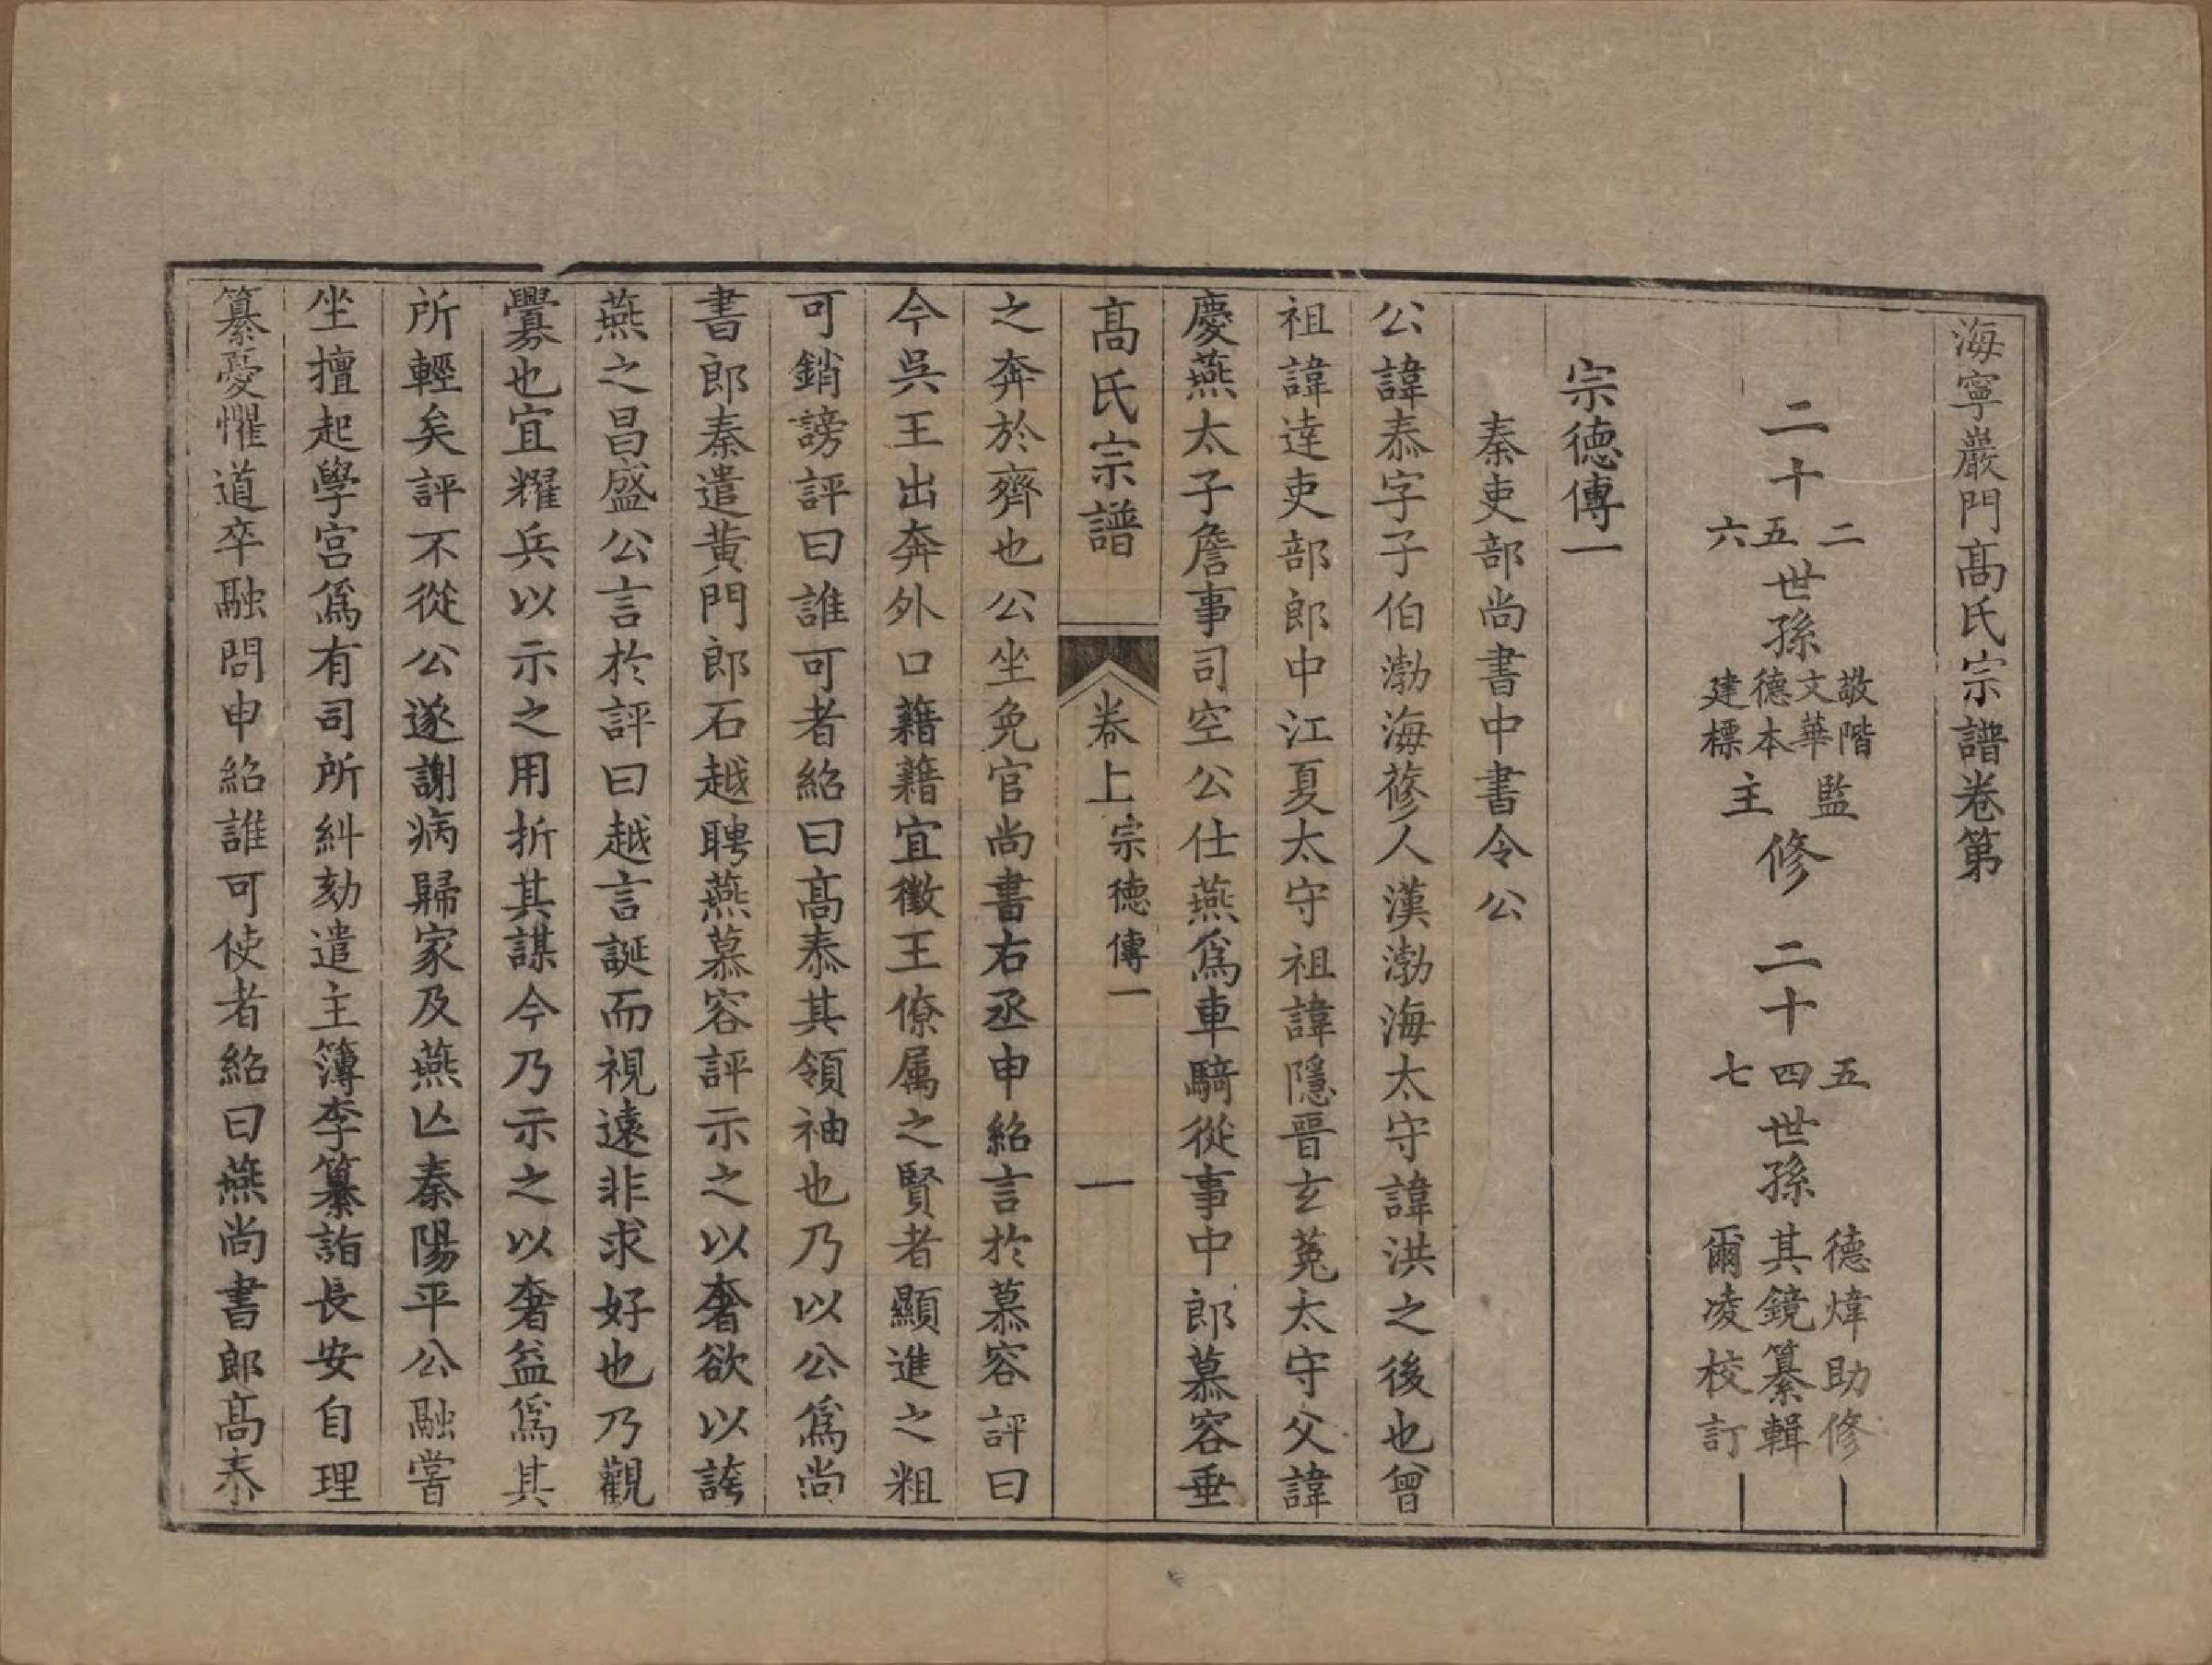 海寧巖門髙氏宗譜卷第
二十二五六世孫敬階文華德本建標監主修
二十五四七世孫德煒助修其鏡纂輯爾凌校訂
宗德傳一
秦吏部尚書中書令公
公諱泰字子伯渤海蓨人漢渤海太守諱洪之後也曾
祖諱達吏部郎中江夏太守祖諱隱晉玄菟太守父諱
慶燕太子詹事司空公仕燕爲車騎從事中郎慕容垂
髙氏宗譜 卷上 宗德傳一 一
之奔於齊也公坐免官尚書右丞申紹言於慕容評曰
今吳王出奔外口藉藉宜徵王僚属之賢者顯進之粗
可銷謗評曰誰可者紹曰髙泰其領袖也乃以公爲尚
書郎秦遣黄門郎石越聘燕慕容評示之以奢欲以誇
燕之昌盛公言於評曰越言誕而視遠非求好也乃觀
釁也宜耀兵以示之用折其謀今乃示之以奢益爲其
所輕矣評不從公遂謝病歸家及燕亾秦陽平公融嘗
坐擅起學宫爲有司所糾劾遣主簿李纂詣長安自理
纂憂懼道卒融問申紹誰可使者紹曰燕尚書郎髙泰